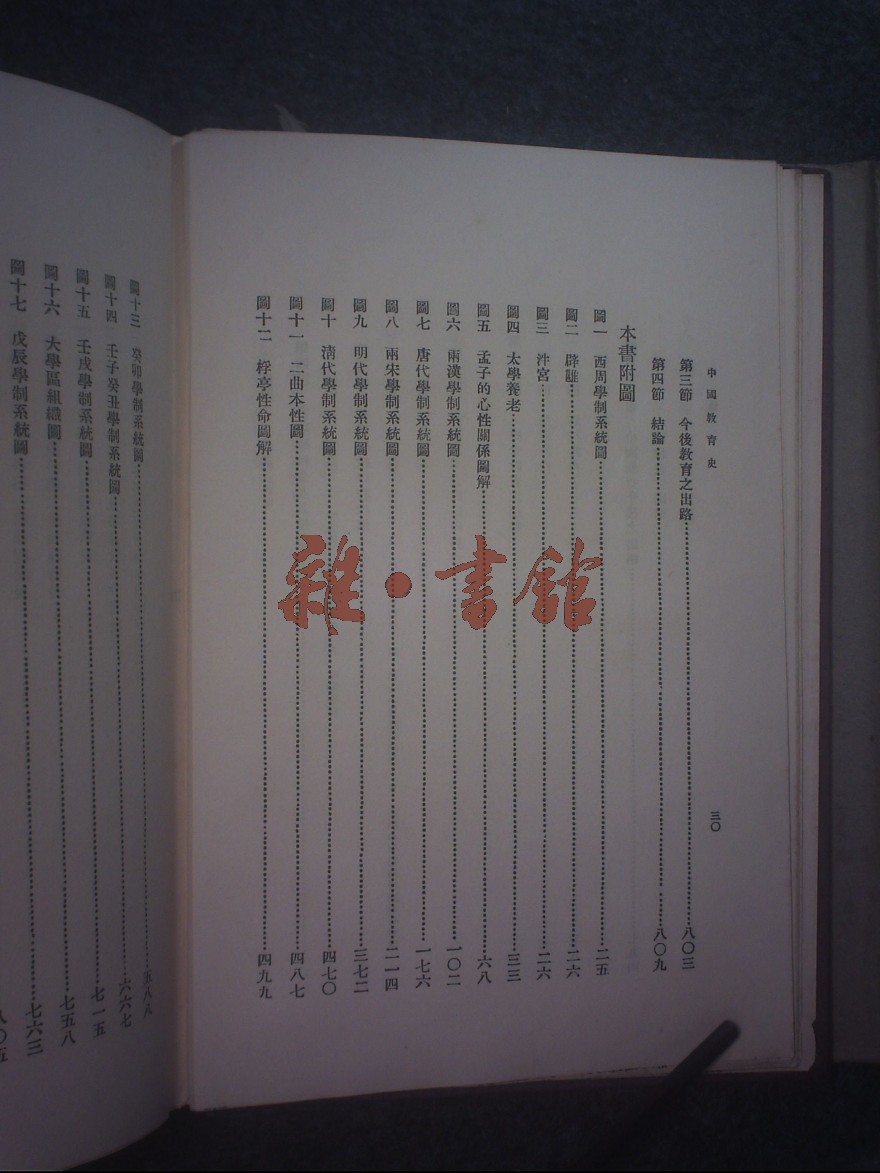 中國教育史
三〇
第三節　今後教育之出路……八〇三
第四節　結論……八〇九
本書附圖
圖一　西周學制系統圖……二五
圖二　辟雝……二六
圖三　泮宮……二六
圖四　太學養老……三三
圖五　孟子的心性關係圖解……六八
圖六　兩漢學制系統圖……一〇二
圖七　唐代學制系統圖……一七六
圖八　兩宋學制系統圖……二一四
圖九　明代學制系統圖……三七二
圖十　清代學制系統圖……四七〇
圖十一　二曲本性圖……四八七
圖十二　桴亭性命圖解……四九九
圖十三　癸卯學制系統圖……五八八
圖十四　壬子癸丑學制系統圖……六六七
圖十五　壬戌學制系統圖……七一五
圖十六　大學區組織圖……七五八
圖十七　戊辰學制系統圖……七六三
八〇五
雜·書館